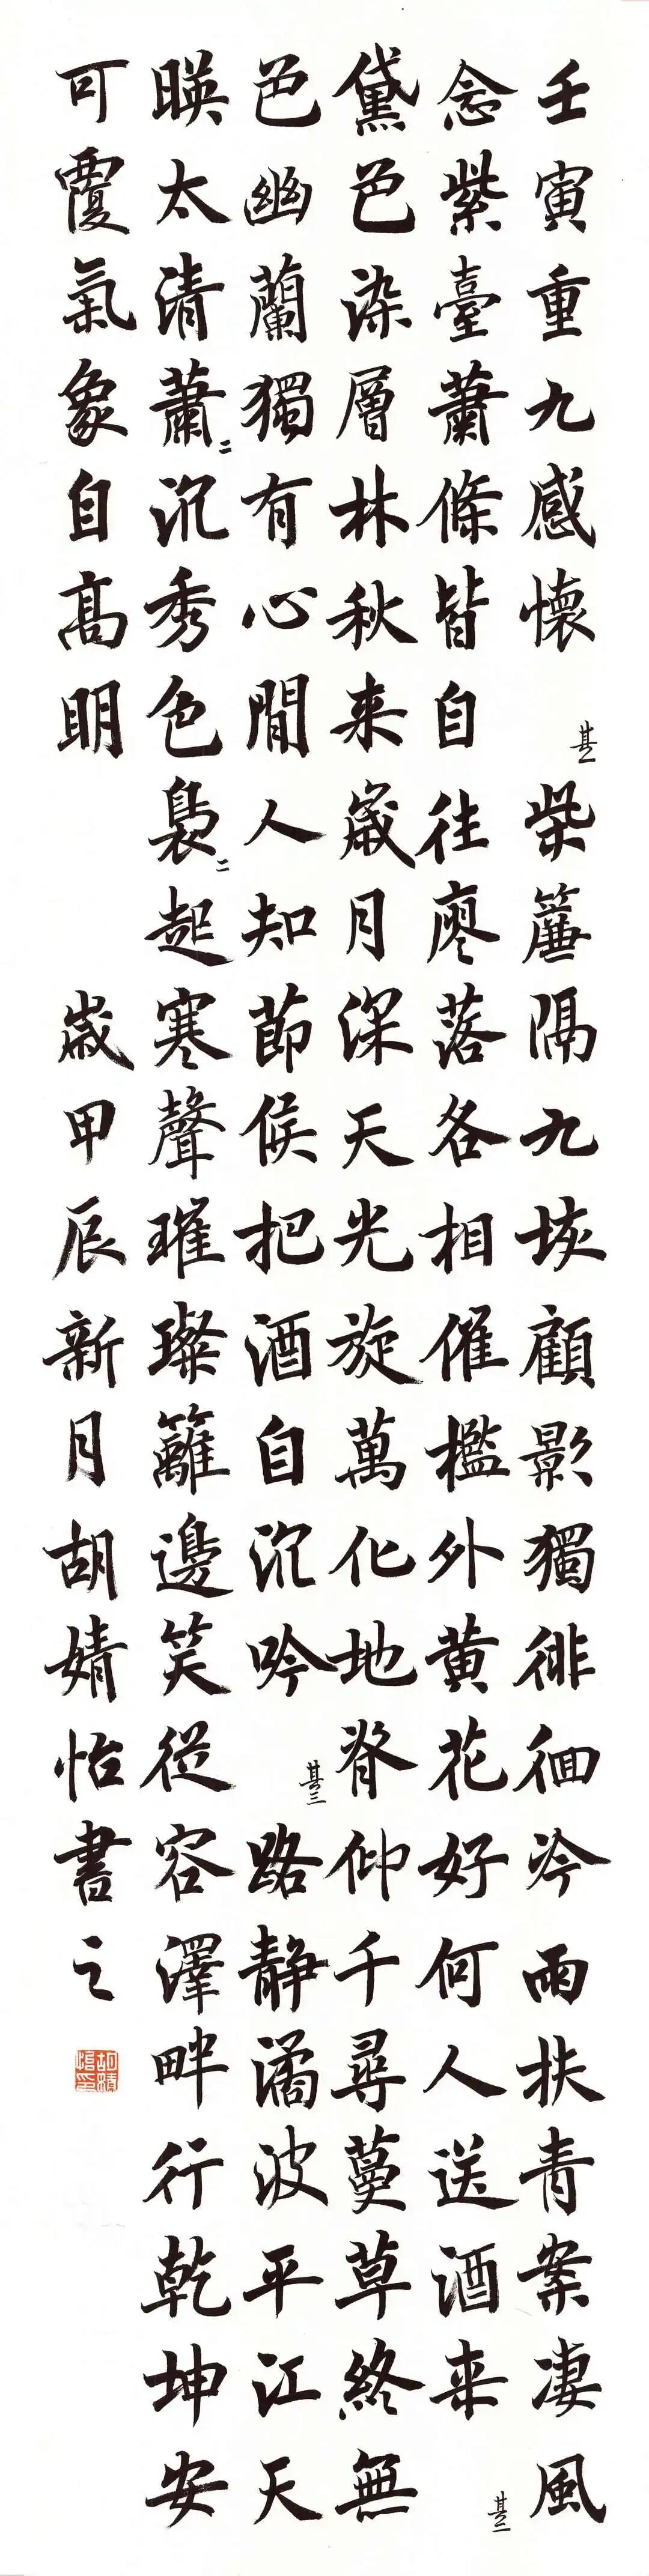 壬寅重九感懷 其一 柴簾隔九垓顧影獨徘徊冷雨扶青案凄風
念紫臺蕭條皆自往廖落各相催檻外黄花好何人送酒来 其二
黛色染層林秋来歲月深天光旋萬化地脊仰千尋蔓草終無
色幽蘭獨有心間人知節候把酒自沉吟 其三 路静潏波平江天
暎太清蕭二沉秀色裊二起寒聲璀璨籬邊笑從容澤畔行乾坤安
可覆氣象自高明 歲甲辰新月胡婧怡書之
胡婧怡印